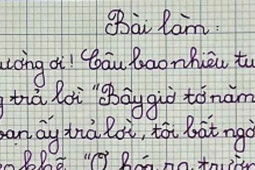 Bài làm:
ương ơi! Cậu bao nhiêu tu
trả lời "Bây giờ tớ năm
bạn ấy trả lời, tôi bất ngờ
khẽ "Ơ hóa ra trườn